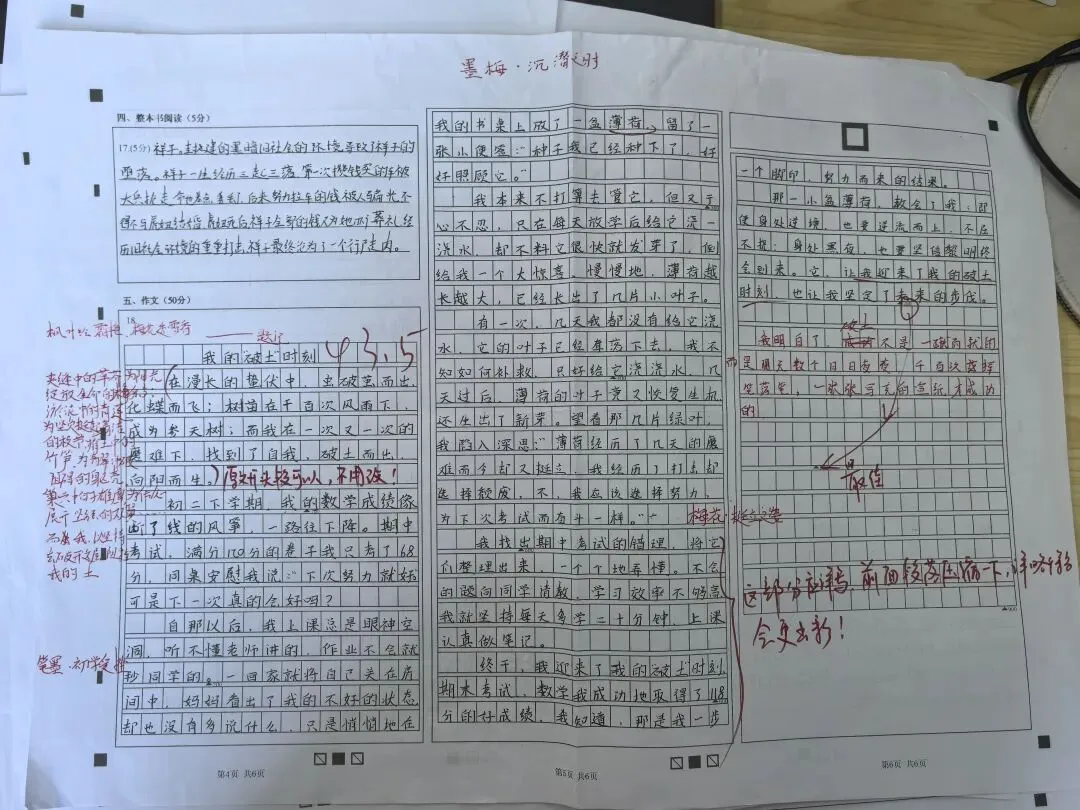 墨梅·沉潜之时
四、整本书阅读（5分）
17.(5分) 祥子。封建的黑暗旧社会的环境导致了祥子的
堕落。祥子一生经历三起三落，第一次攒钱买的车被
大兵抢走，后来努力拉车的钱被人骗光，不
得不与虎妞结婚，虎妞死后祥子全部的钱又为她办了葬礼，经
历旧社会环境的重重打击，祥子最终沦为了一个行走肉。
五、作文（50分）
18.
——题记
43.5
我的破土时刻
在漫长的蛰伏中，虫破茧而出，
化蝶而飞；树苗在千百次风雨下，
成为参天树；而我在一次又一次的
磨难下，找到了自我，破土而出，
向阳而生。
原开头段可以，不用改！
初二下学期，我的数学成绩像
断了线的风筝，一路往下降。期中
考试，满分120分的卷子我只考了68
分，同桌安慰我说：“下次努力就好”
可是下一次真的会好吗？
自那以后，我上课总是眼神空
洞，听不懂老师讲的，作业不会就
抄同学的。一回家就将自己关在房
间中，妈妈看出了我的不好的状态，
却也没有多说什么，只是悄悄地在
夹缝中的
绽放生命的
的枝
竹笋，为
我的土
笔墨·初学
我的书桌上放了一盆薄荷，留了一
张小便签：“种子我已经种下了，好
好照顾它。”
我本来不打算去管它，但又于
心不忍，只在每天放学后给它浇一
浇水，却不料它很快就发芽了，倒
给我一个大惊喜，慢慢地，薄荷越
长越大，已经长出了几片小叶子。
有一次，几天我都没有给它浇
水，它的叶子已经奔落下去，我不
知如何补救，只好给它浇浇水，几
天过后，薄荷的叶子竟又恢复生机
还生出了新芽。望着那几片绿叶，
我陷入深思：“薄荷经历了几天的磨
难而今却又挺立，我经历了打击却
选择颓废，不，我应该选择努力，
为下次考试而奋斗一样。”
我找出期中考试的错理，将它
们整理出来，一个个地弄懂。不会
的题问同学请教，学习效率不够高
我就坚持每天多学二十分钟，上课
认真做笔记。
终于，我迎来了我的破土时刻，
期末考试，数学我成功地取得了118
分的好成绩，我知道，那是我一步
一个脚印，努力而来的结果。
那一小盆薄荷，教会了我：即
使身处逆境，也要逆流而上，不屈
不挠；身处黑夜，也要坚信黎明终
会到来。它，让我迎来了我的破土
时刻，也让我坚定了未来的步伐。
我明白了破土不是一蹴而就的
而是用无数个日日夜夜，千百次蘸鲜
笔落笔，一张张写完的宣纸才成功
的
最佳
这部分应详写，前面段落压缩一下，详略得当
会更出彩！
第4页 共6页
第5页 共6页
第6页 共6页